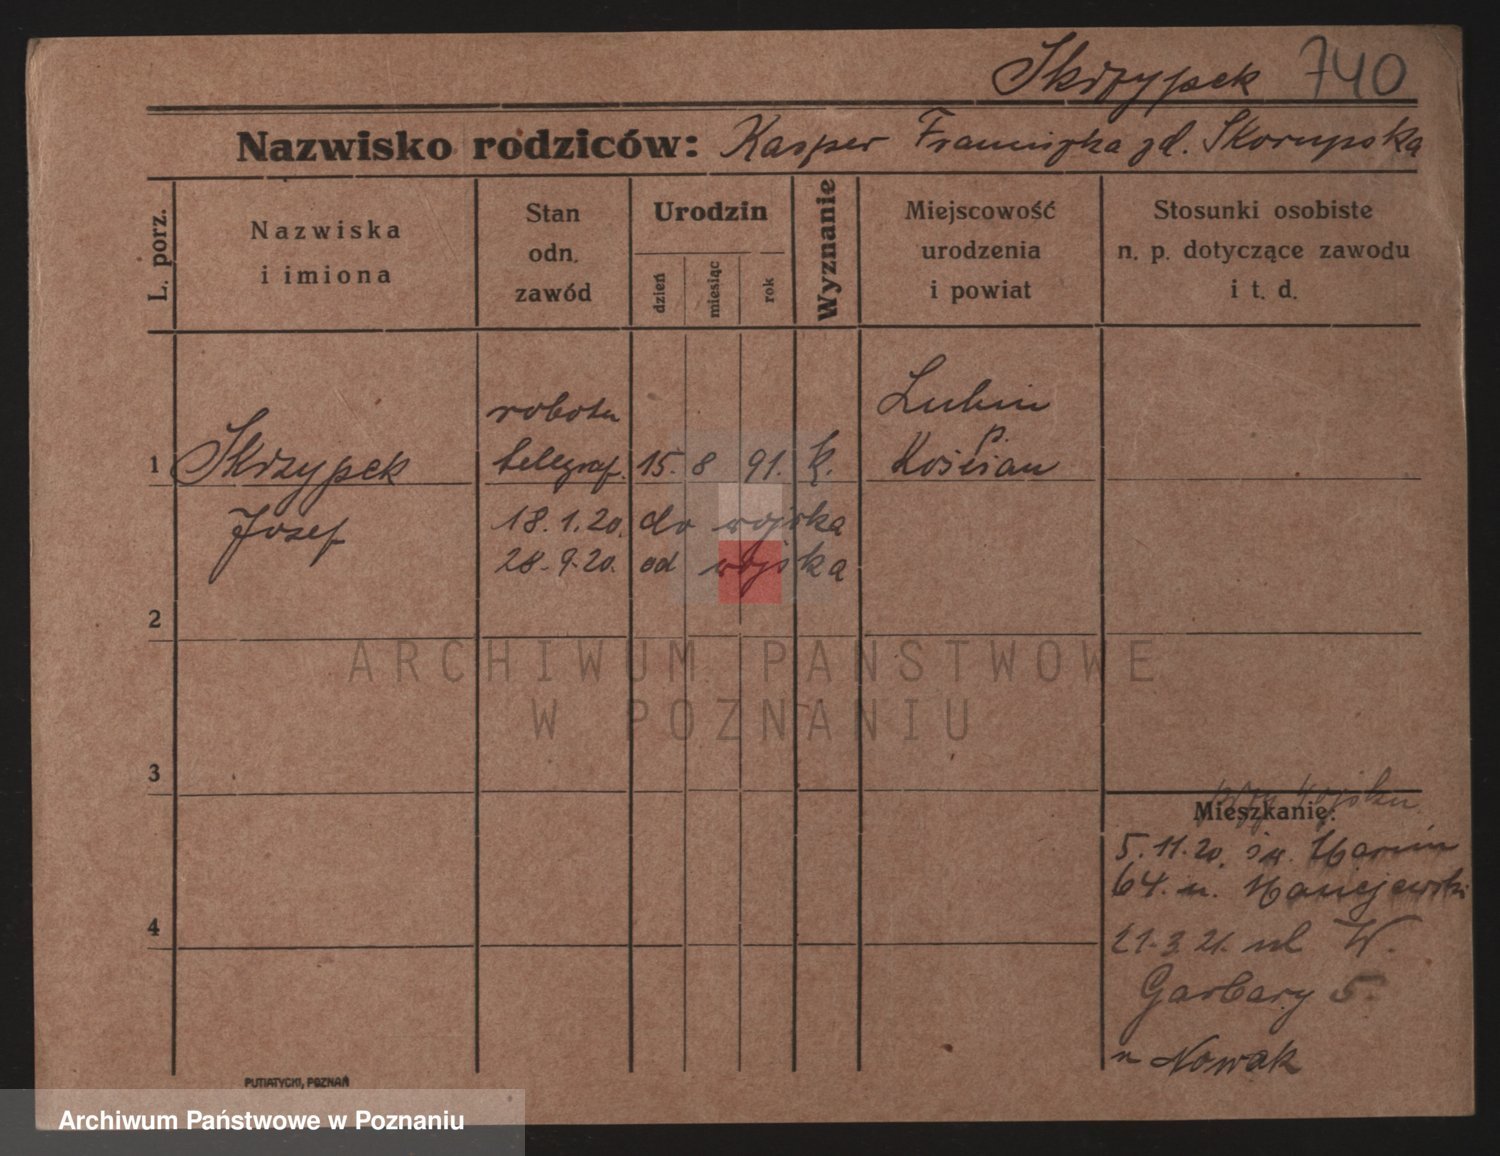 Skrzypek 740
Nazwisko rodziców: Kasper Franciszka zd. Skorupska
L. porz.
Nazwiska
i imiona
Stan
odn.
zawód
Urodzin
dzień
miesiąc
rok
Wyznanie
Miejscowość
urodzenia
i powiat
Stosunki osobiste
n. p. dotyczące zawodu
i t. d.
1
Skrzypek
Josef
robotn
telegraf.
15. 8 91. k.
Lubin
p.
Kościan
18.1.20. do wojska
28.9.20. od wojska
2
3
4
przy wojsku
Mieszkanie:
5.11.20. św. Marcin
64. u. Maciejewski
21.3.21. ul W.
Garbary 5.
u Nowak
PUTIATYCKI, POZNAŃ
ARCHIWUM PAŃSTWOWE
W POZNANIU
Archiwum Państwowe w Poznaniu